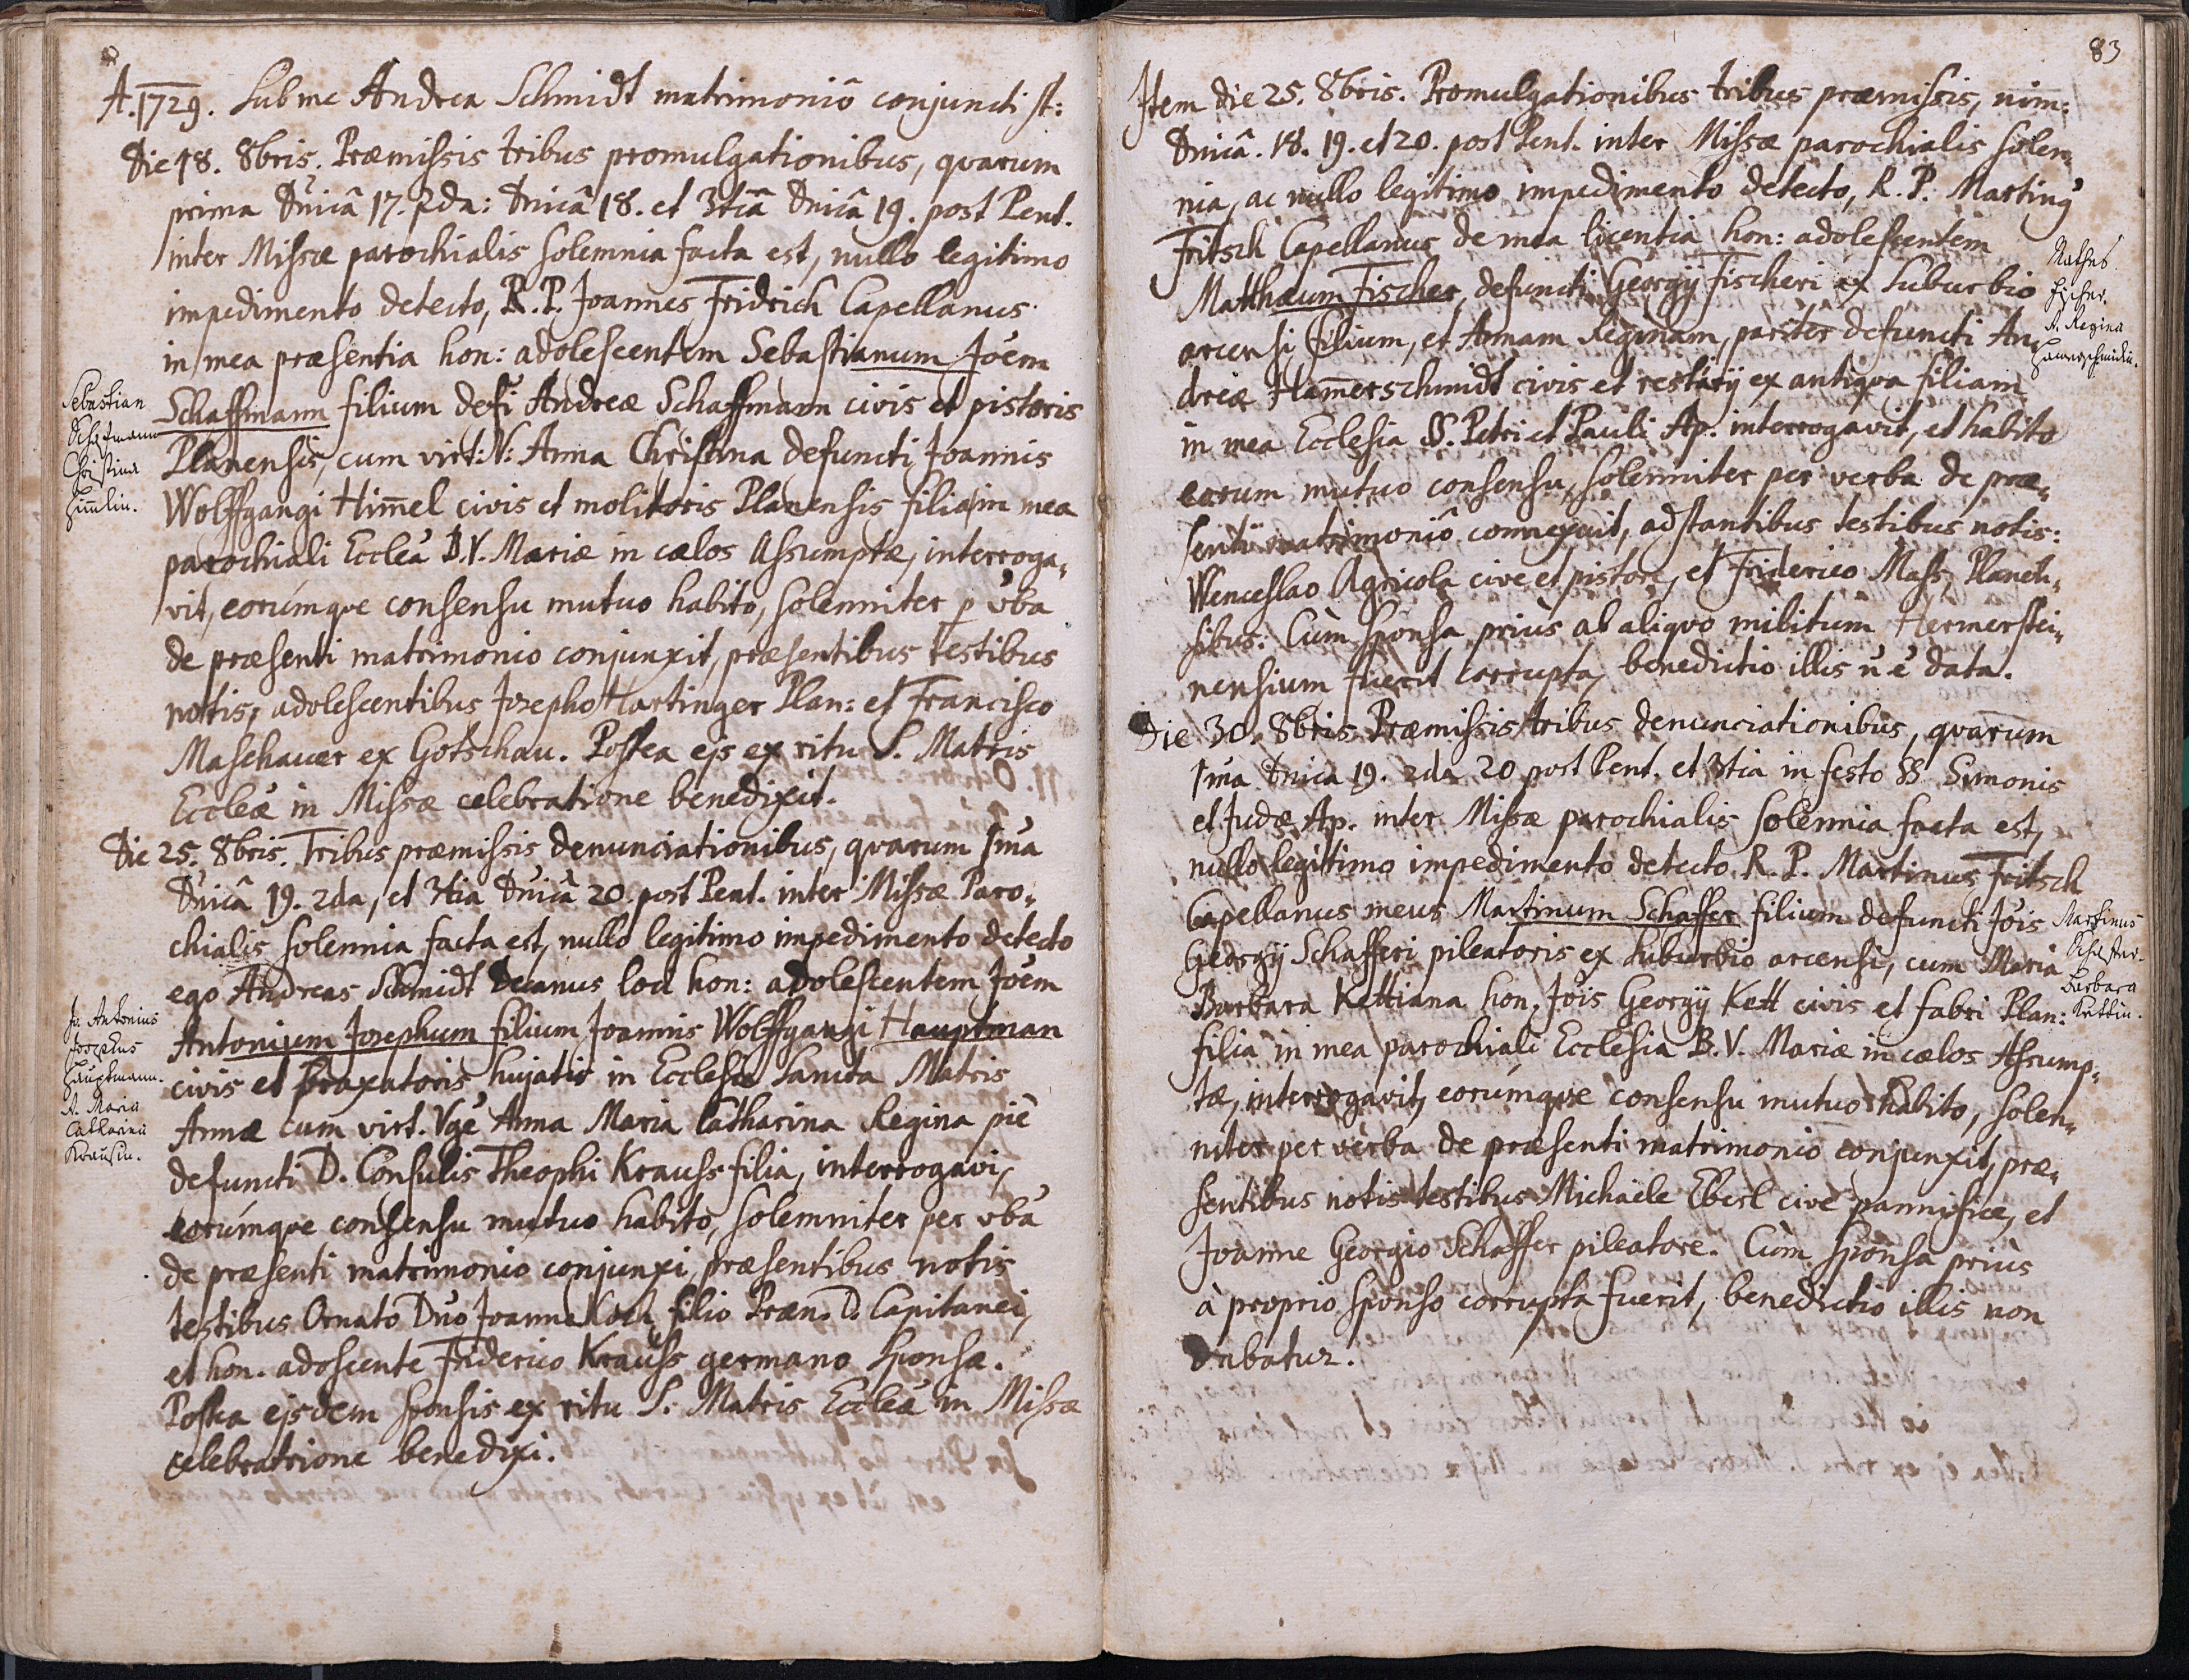 A. 1729. Sub me Andrea Schmidt matrimoniō conjuncti st:
Die 18. 8bris. Præmissis tribus promulgationibus, qvarum
prima Dn̄icâ 17. 2da: Dnicâ 18. et 3tiā Dnicâ 19. post Pent.
inter Missæ parochialis solemnia facta est, nullo legitimo
impedimento detecto, R. P. Joannes Fridrich Capellanus
in mea præsentia hon: adolescentem Sebastianum Joēm
Sebastian
Schafmann
Christina
Him̄lin.
Schaffmann filium def̄i Andreæ Schaffmann civis et pistoris
Planensis, cum virt: V: Anna Christina defuncti Joannis
Wolffgangi Him̄el civis et molitoris Planensis filia, in mea
parochiali Eccleâ B. V. Mariæ in cælos Assumptæ, interroga„
vit, eorúmqve consensu mutuo habito, solenniter p vba
de præsenti matrimonio conjunxit, præsentibus testibus
notis, adolescentibus Josepho Hartinger Plan: et Francisco
Maschauer ex Gotschau. Postea ejs ex ritu S. Matris
Eccleæ in Missæ celebratione benedixit.
Die 25. 8bris. Tribus præmissis denunciationibus, qvarum 1ma
Dnicâ 19. 2da, et 3tia Dnicâ 20. post Pent. inter Missæ Paro„
chialis solennia facta est, nullo legitimo impedimento detecto
ego Andreas Schmidt Decanus loci hon: adolescentem Joēm
Jo. Antonius
Josephus
Hauptmann.
A. Maria
Catharina
Kraußin.
Antonium Josephum filium Joannis Wolffgangi Hauptman
civis et braxatoris hujatis in Ecclesia Sancta Matris
Annæ cum virt. Vge Anna Maria Catharina Regina piè
defuncti D. Consulis Theophi Krauss filia, interrogavi,
eorúmqve consensu mutuo habito, solemniter per vba
de præsenti matrimonio conjunxi, præsentibus notis
testibus Ornato Dn̄o Joanne Koch, filio Præn. D. Capitanei,
et hon. adoscente Friderico Krauss germano Sponsæ.
Postea ejsdem sponsis ex ritu S. Matris Eccleæ in Missæ
celebratione benedixi.
83
Item die 25. 8bris. Promulgationibus tribus præmissis, nim:
Dnicâ. 18. 19. et 20. post Pent. inter Missæ parochialis solen„
nia, ac nullo legitimo impedimento detecto, R. P. Martinꝰ
Fritsch Capellanus de mea licentia hon: adolescentem
Mathes
Fischer.
A. Regina
Hamerschmidin.
Matthæum Fischer, defuncti Georgij Fischeri ex Suburbio
arcensi filium, et Annam Reginam, pariter defuncti An„
dreæ Ham̄erschmidt civis et restiarij ex antiqva filiam
in mea Ecclesia SS. Petri et Pauli Ap. interrogavit, et habito
eorum mutuo consensu, solenniter per verba de præ„
senti matrimoniô connexuit, adstantibus testibus notis:
Wenceslao Agricola cive et pistore, et Friderico Mass, Planen„
sibus: Cùm sponsa priùs ab aliqvo militum Hermerstei„
nensium fuerit corrupta, benedictio illis n̄ ē data.
Die 30. 8bris. Præmissis tribus denunciationibus, qvarum
1ma Dnica 19. 2da 20 post Pent. et 3tia in festo SS Simonis
et Judæ Ap. inter Missæ parochialis solennia facta est,
nullo legittimo impedimento detecto R. P. Martinus Fritsch
Capellanus meus Martinum Schaffer filium defuncti Jois
Martinus
Schaffer.
Barbara
Kettin.
Georgij Schafferi pileatoris ex suburbio arcensi, cum Maria
Barbara Kettiana hon. Jois Georgij Kett civis et fabri Plan:
filia in mea parochiali Ecclesia B. V. Mariæ in cælos Assump„
tæ, interrogavit, eorúmqve consensu mutuo habito, solen„
niter per verba de præsenti matrimonio conjunxit, præ„
sentibus notis testibus Michaele Eberl cive pannifice, et
Joanne Georgio Schaffer pileatore. Cùm sponsa priùs
à proprio sponso corrupta fuerit, benedictio illis non
dabatur.